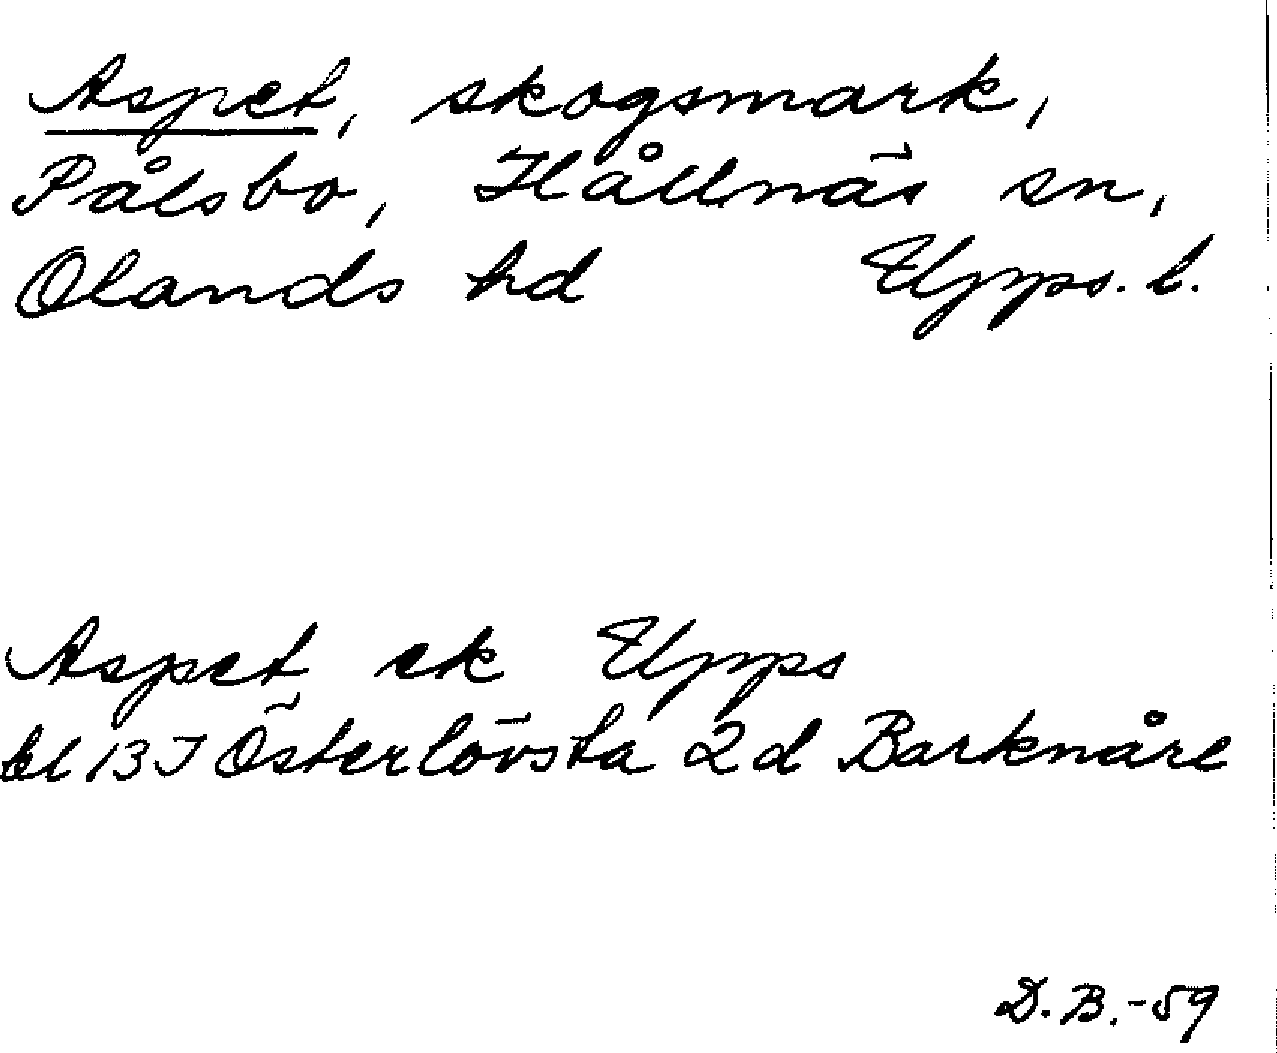 Aspet, skogsmark,
Pålsbo, Hållnäs sn,
Olands hd Upps. l.
Aspet ek Upps
bl 13 I Österlövsta 2d Barknåre
D.B.-59